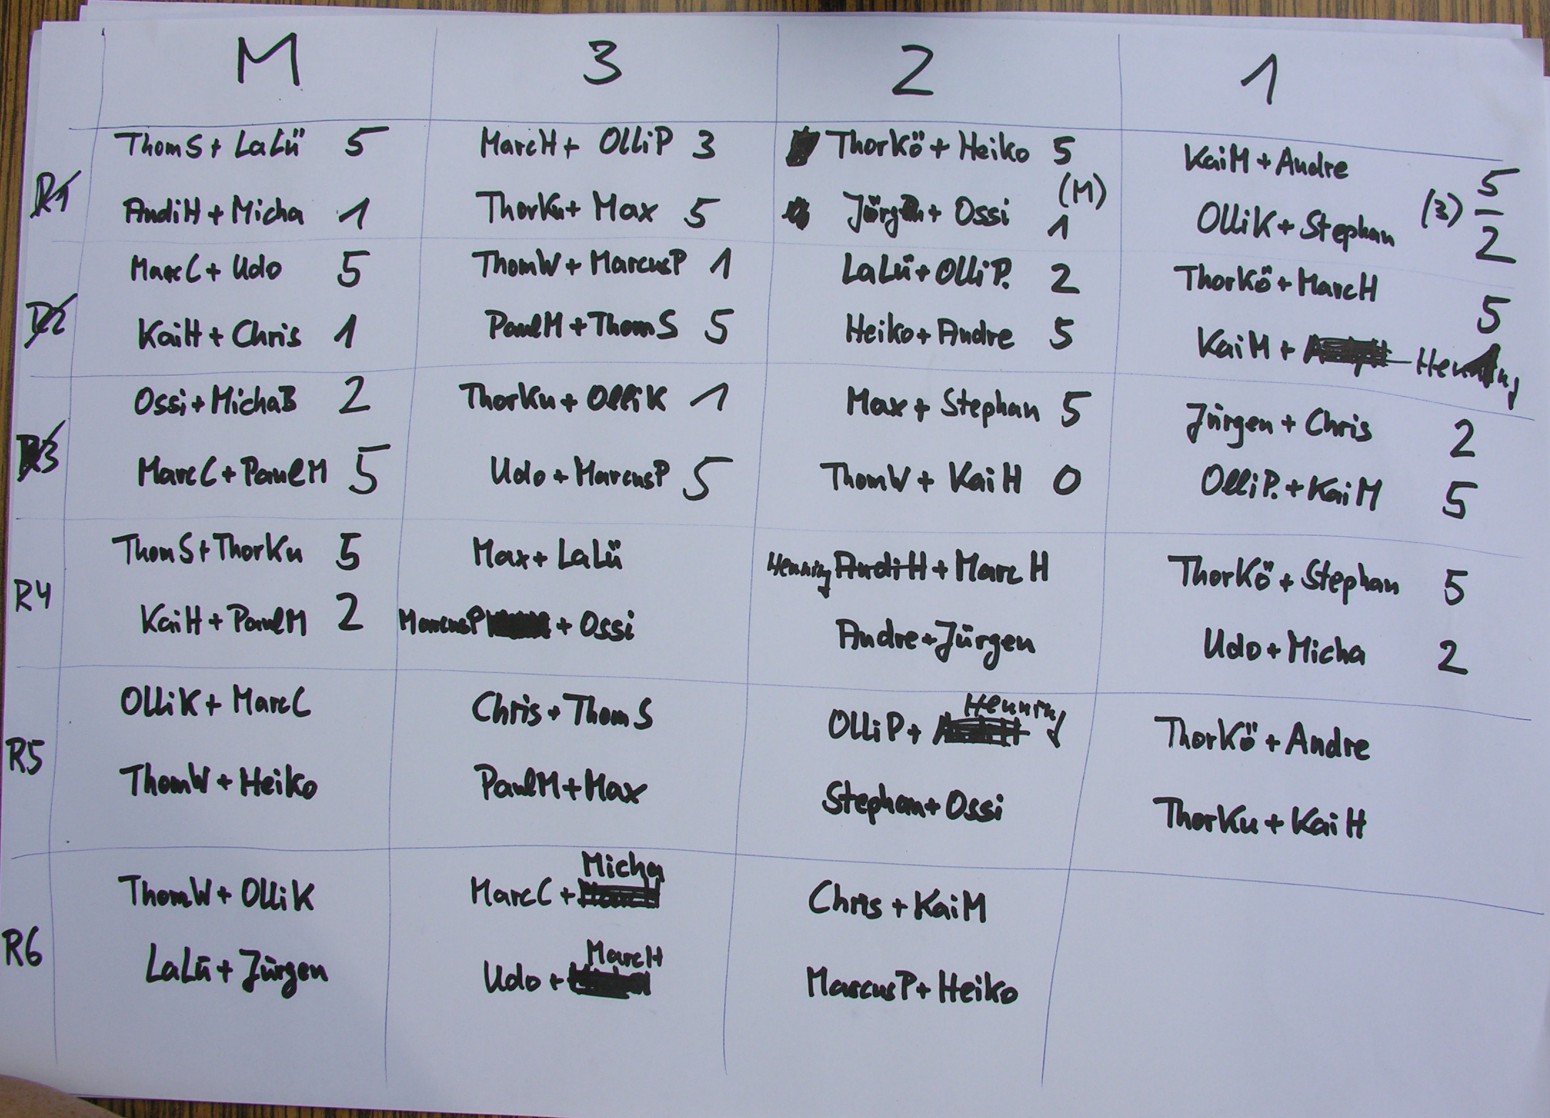 M 3 2 1
R1
ThomS + LaLü 5
AndiH + Micha 1
MarcH + OlliP 3
ThorKu + Max 5
ThorKö + Heiko 5
(M)
Jürgen + Ossi 1
KaiM + Andre 5
OlliK + Stephan (3) 2
R2
MarcC + Udo 5
KaiH + Chris 1
ThomW + MarcusP 1
PaulM + ThomS 5
LaLü + OlliP. 2
Heiko + Andre 5
ThorKö + MarcH 5
KaiM + Henning 1
R3
Ossi + MichaB 2
MarcC + PaulM 5
ThorKu + OlliK 1
Udo + MarcusP 5
Max + Stephan 5
ThomW + KaiH 0
Jürgen + Chris 2
OlliP. + KaiM 5
R4
ThomS + ThorKu 5
KaiH + PaulM 2
Max + LaLü
MarcusP + Ossi
Henning AndiH + MarcH
Andre + Jürgen
ThorKö + Stephan 5
Udo + Micha 2
R5
OlliK + MarcC
ThomW + Heiko
Chris + ThomS
PaulM + Max
Henning
OlliP +
Stephan + Ossi
ThorKö + Andre
ThorKu + KaiH
R6
ThomW + OlliK
LaLü + Jürgen
Micha
MarcC + MarcH
MarcH
Udo +
Chris + KaiM
MarcusP + Heiko